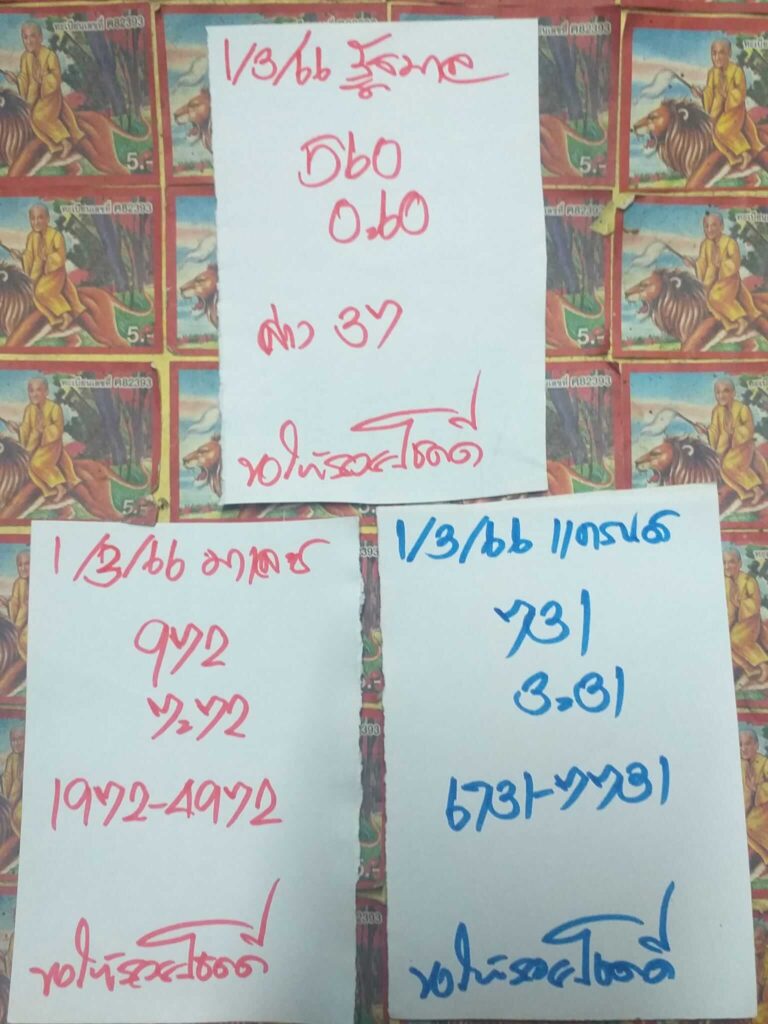 1/3/66 รัฐบาล
560
0.60
ล่าง 37
ขอให้รวยโชคดี
1/3/66 มาเลย์
972
7.72
1972-4972
ขอให้รวยโชคดี
1/3/66
731
3.31
6731-7731
ขอให้รวยโชคดี
ทะเบียนเลขที่ ค82393
5.-